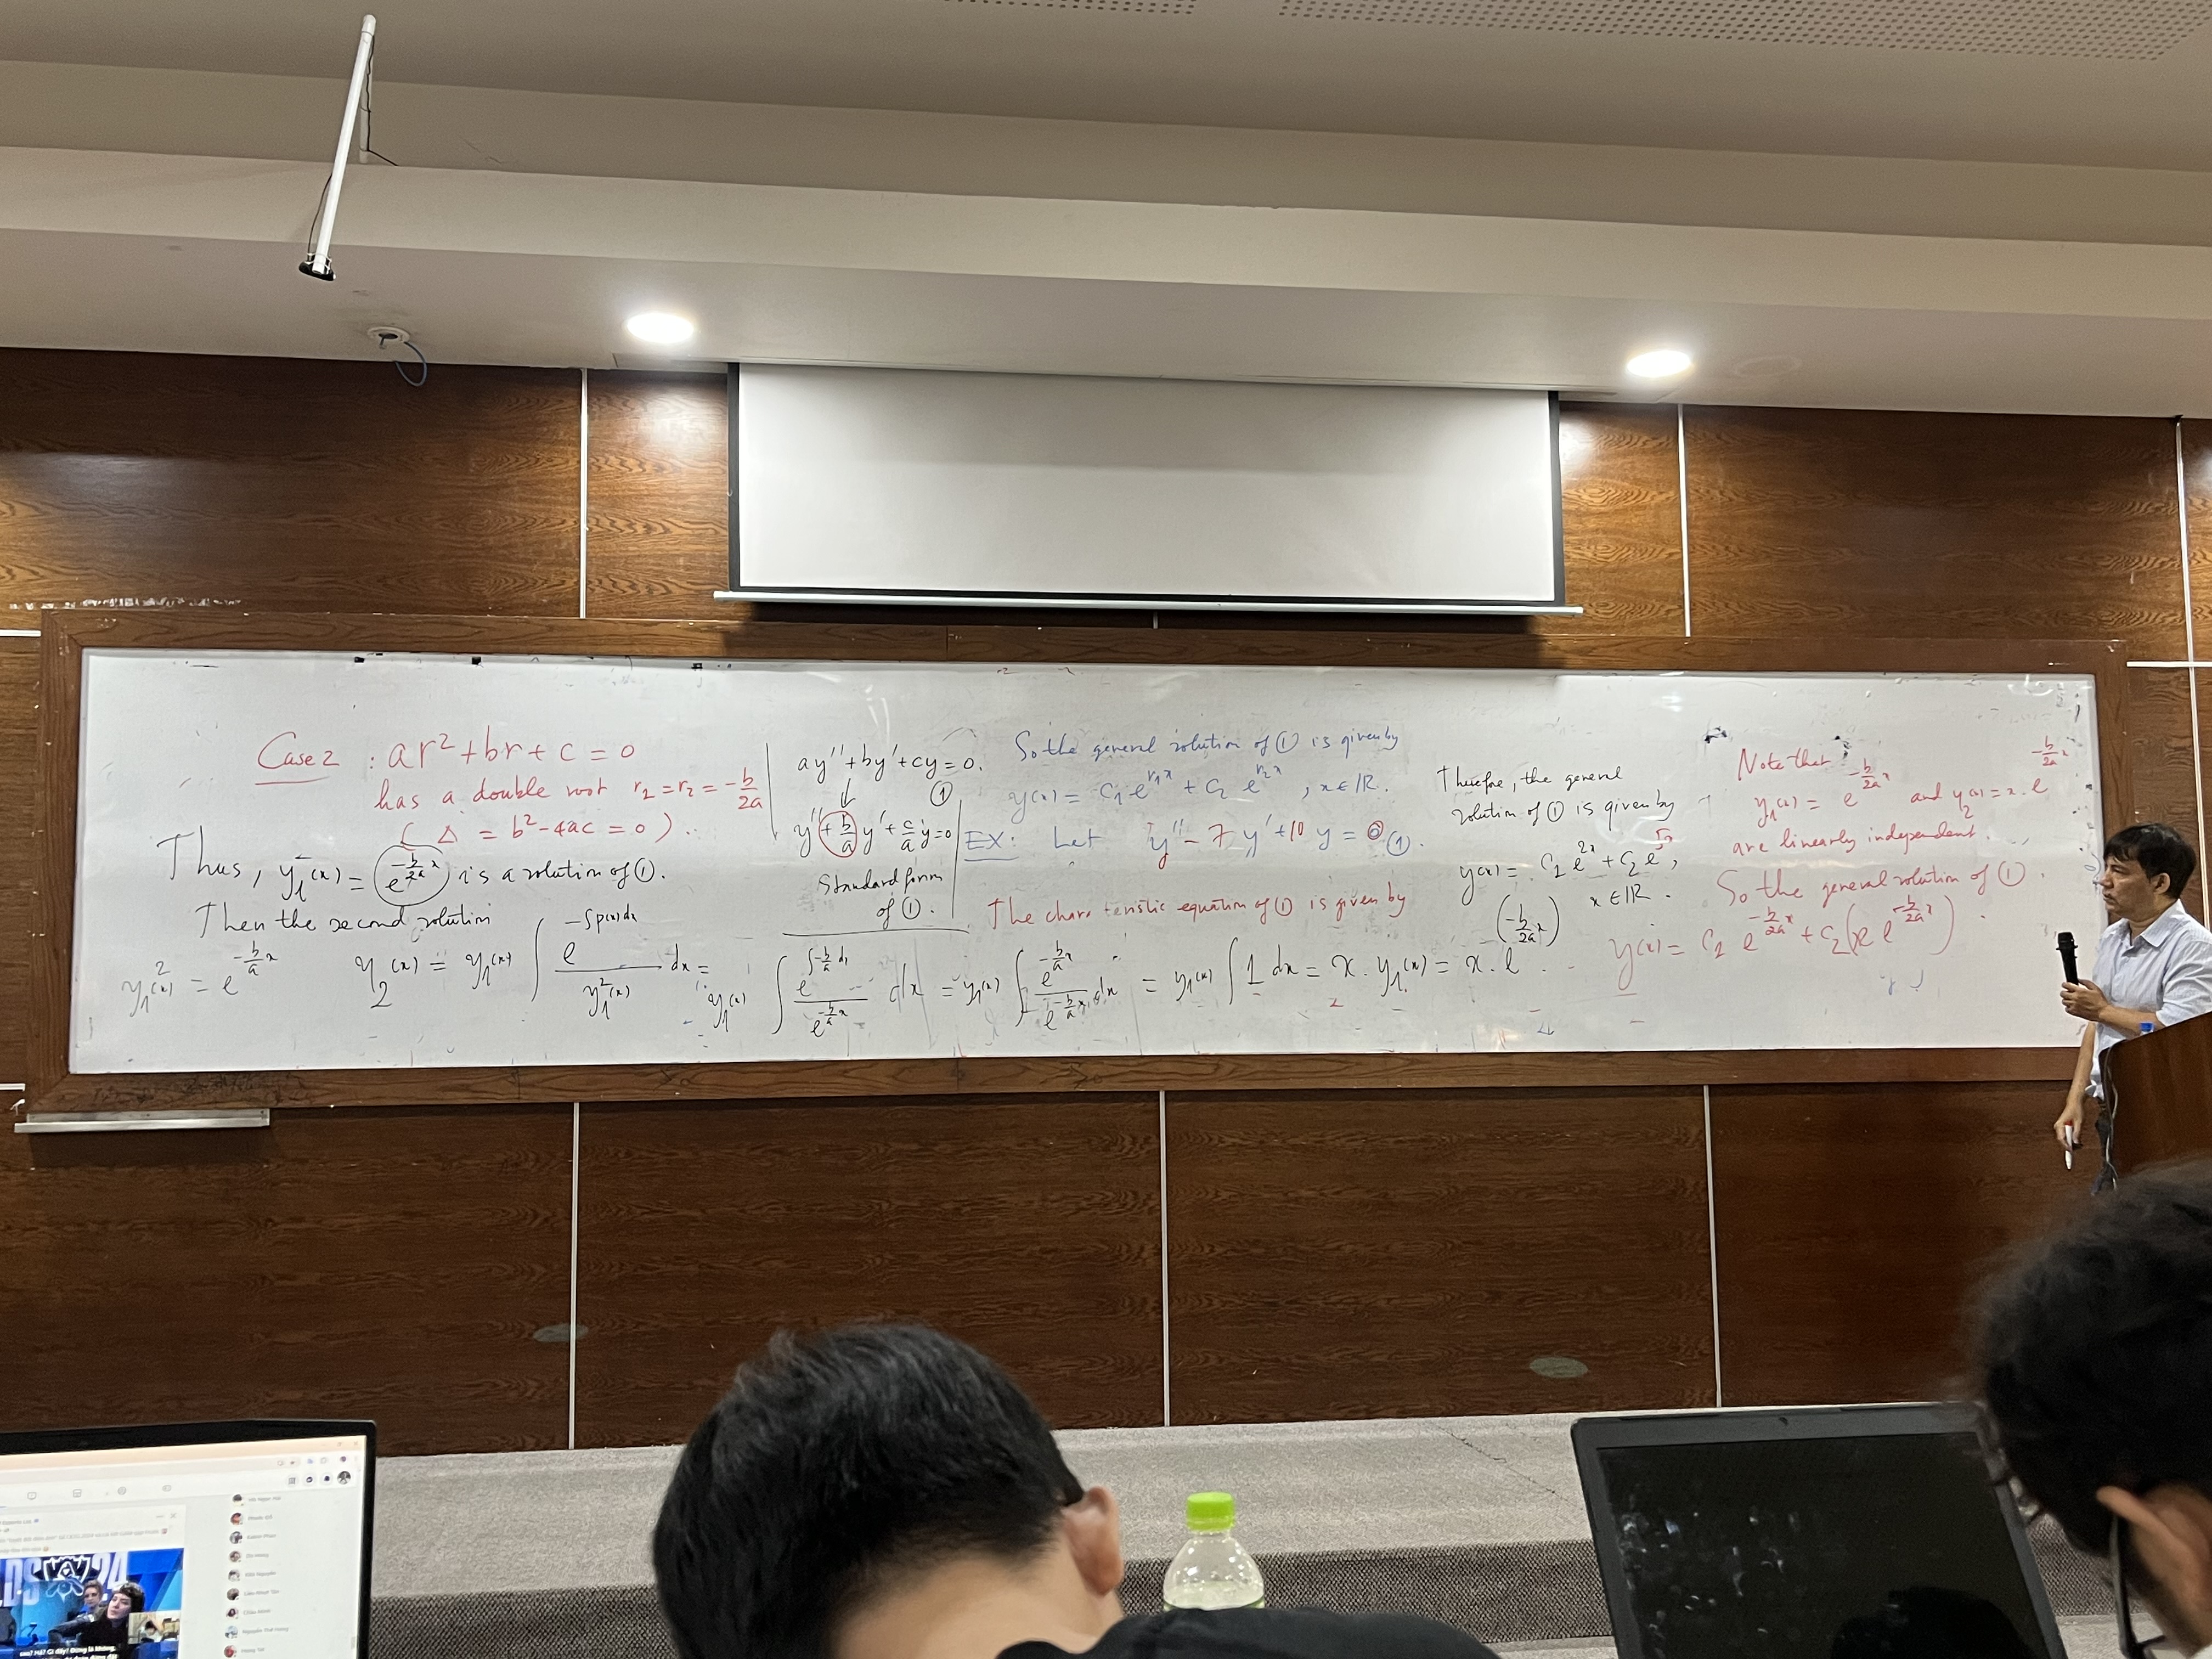 Case 2 : ar² + br + c = 0
has a double root r₁ = r₂ = -b/2a
( Δ = b² - 4ac = 0 ).
Thus, y₁(x) = e^(-b/2a x) is a solution of ①.
Then the second solution
y₁²(x) = e^(-b/a x)
y₂(x) = y₁(x) ∫ e^(-∫p(x)dx) / y₁²(x) dx =
= y₁(x) ∫ e^(∫-b/a dx) / e^(-b/a x) dx = y₁(x) ∫ e^(-b/a x) / e^(-b/a x) dx = y₁(x) ∫ 1 dx = x . y₁(x) = x . e^(-b/2a x)
ay'' + by' + cy = 0.
①
y'' + b/a y' + c/a y = 0
Standard form
of ①.
So the general solution of ① is given by
y(x) = C₁ e^(r₁x) + C₂ e^(r₂x) , x ∈ ℝ.
EX: Let y'' - 7 y' + 10 y = 0 ①.
The characteristic equation of ① is given by
Therefore, the general
solution of ① is given by
y(x) = C₁ e^(2x) + C₂ e^(5x),
x ∈ ℝ.
Note that
y₁(x) = e^(-b/2a x) and y₂(x) = x . e^(-b/2a x)
are linearly independent.
So the general solution of ①.
y(x) = C₁ e^(-b/2a x) + C₂ (x e^(-b/2a x)).